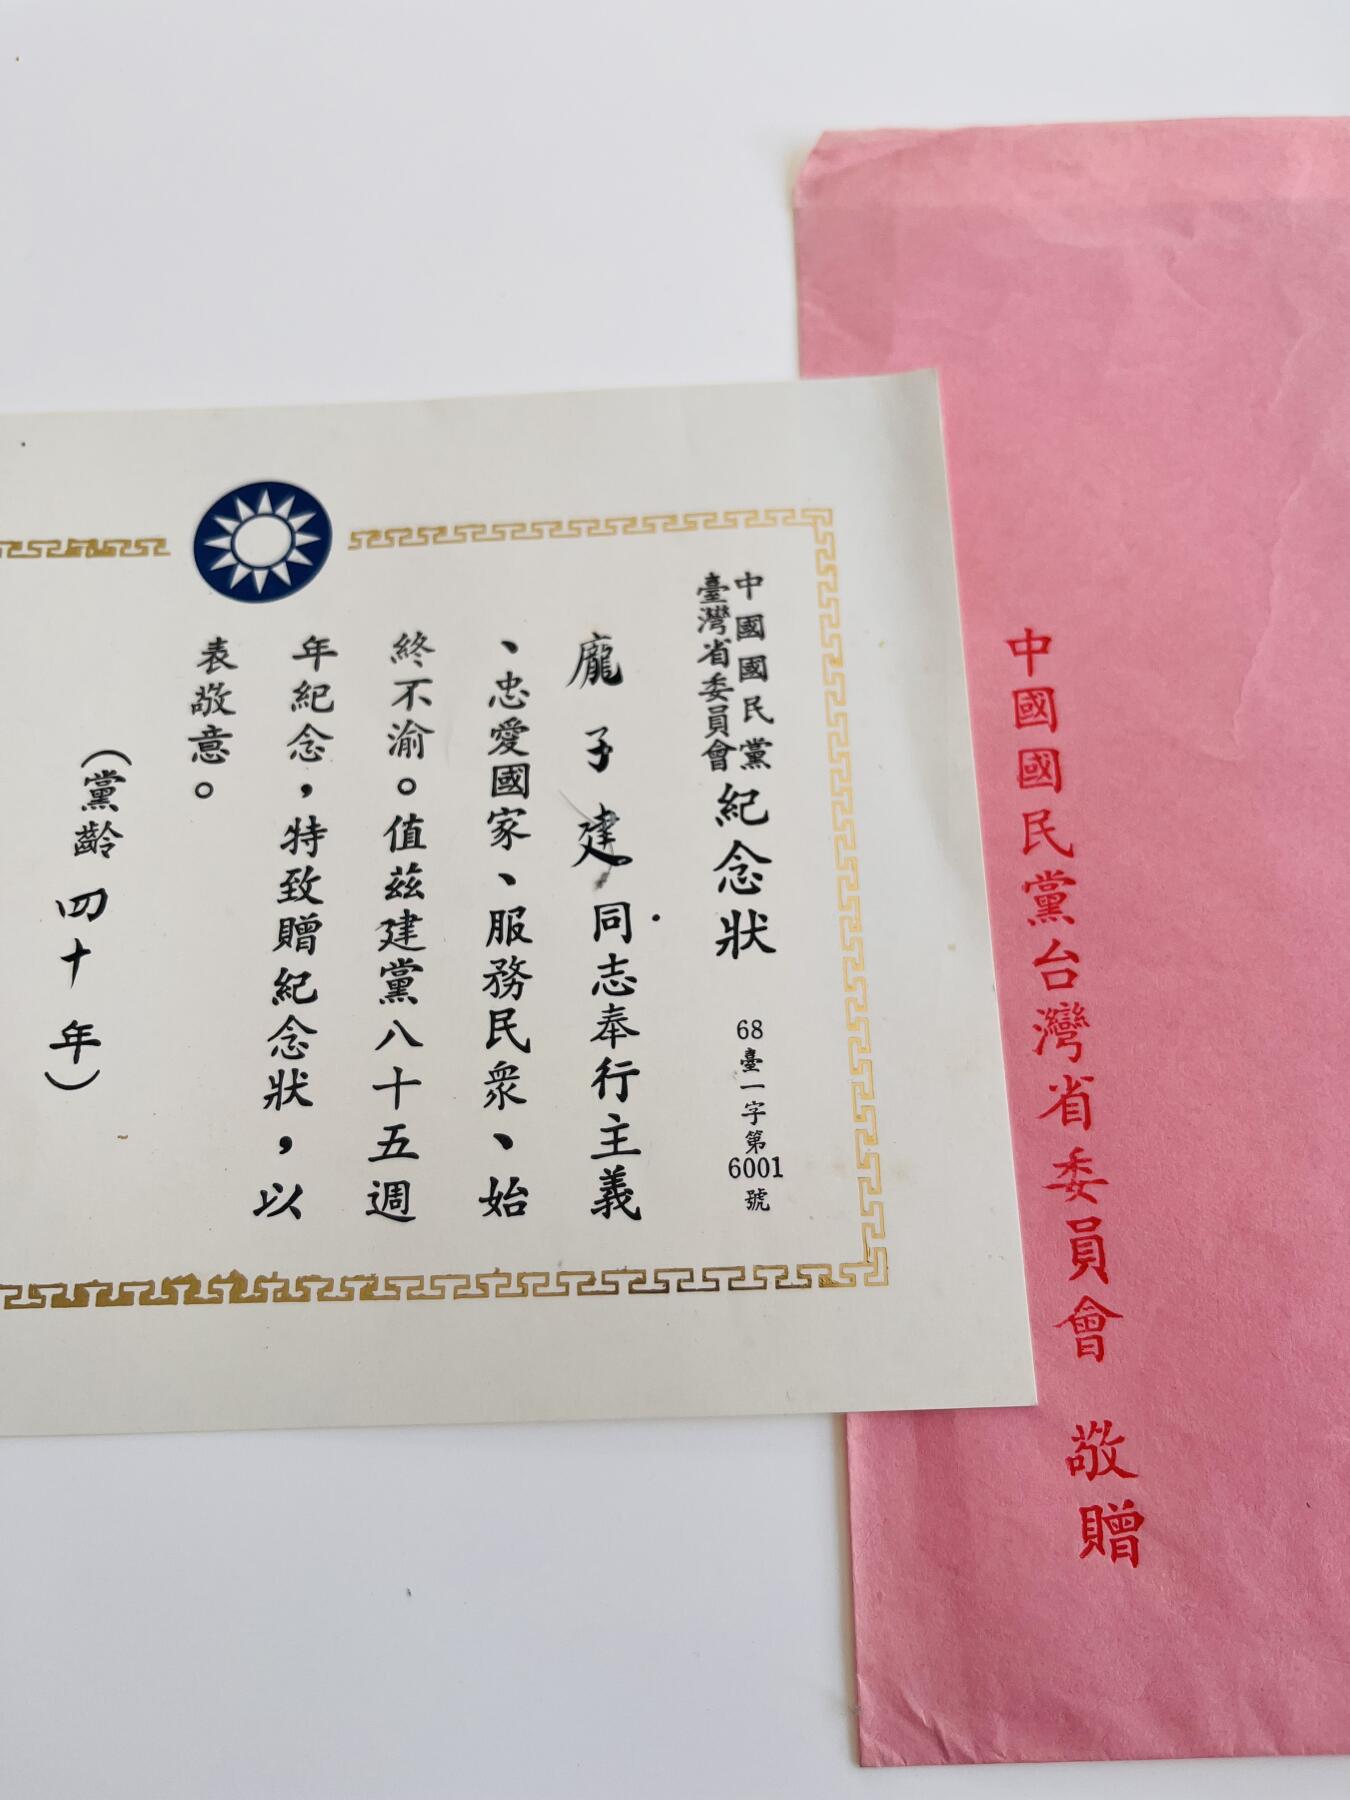 中國國民黨台灣省委員會 敬贈
中國國民黨
臺灣省委員會
紀念狀
68臺一字第6001號
龐子建同志奉行主義
、忠愛國家、服務民眾、始
終不渝。值茲建黨八十五週
年紀念，特致贈紀念狀，以
表敬意。
（黨齡四十年）